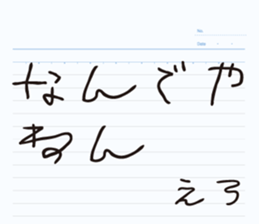 No.
Date ・ ・
なんでや
ねん
えろ